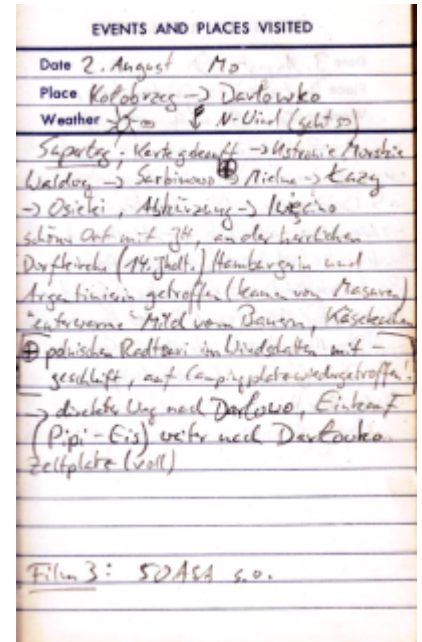 EVENTS AND PLACES VISITED
Date 2. August Mo
Place Kołobrzeg -> Darłowko
Weather N-Wind (geht so)
Supertag, Karte gekauft -> Ustronie Morskie
Waldweg -> Sarbinowo ⊕ Mielno -> Łazy
-> Osieki, Abkürzung -> Iwięcino
schöner Ort mit JH, an der herrlichen
Dorfkirche (14. Jhdt.) Hamburgerin und
Argentinierin getroffen (kamen von Masuren)
"euterwarme" Milch vom Bauern, Käsekuchen
⊕ polnischen Radtouri im Windschatten mit-
geschleift, auf Campingplatz wiedergetroffen!
-> direkter Weg nach Darłowo, Einkauf
(Pipi-Eis) weiter nach Darłowko
Zeltplatz (voll)
Film 3: 50ASA s.o.